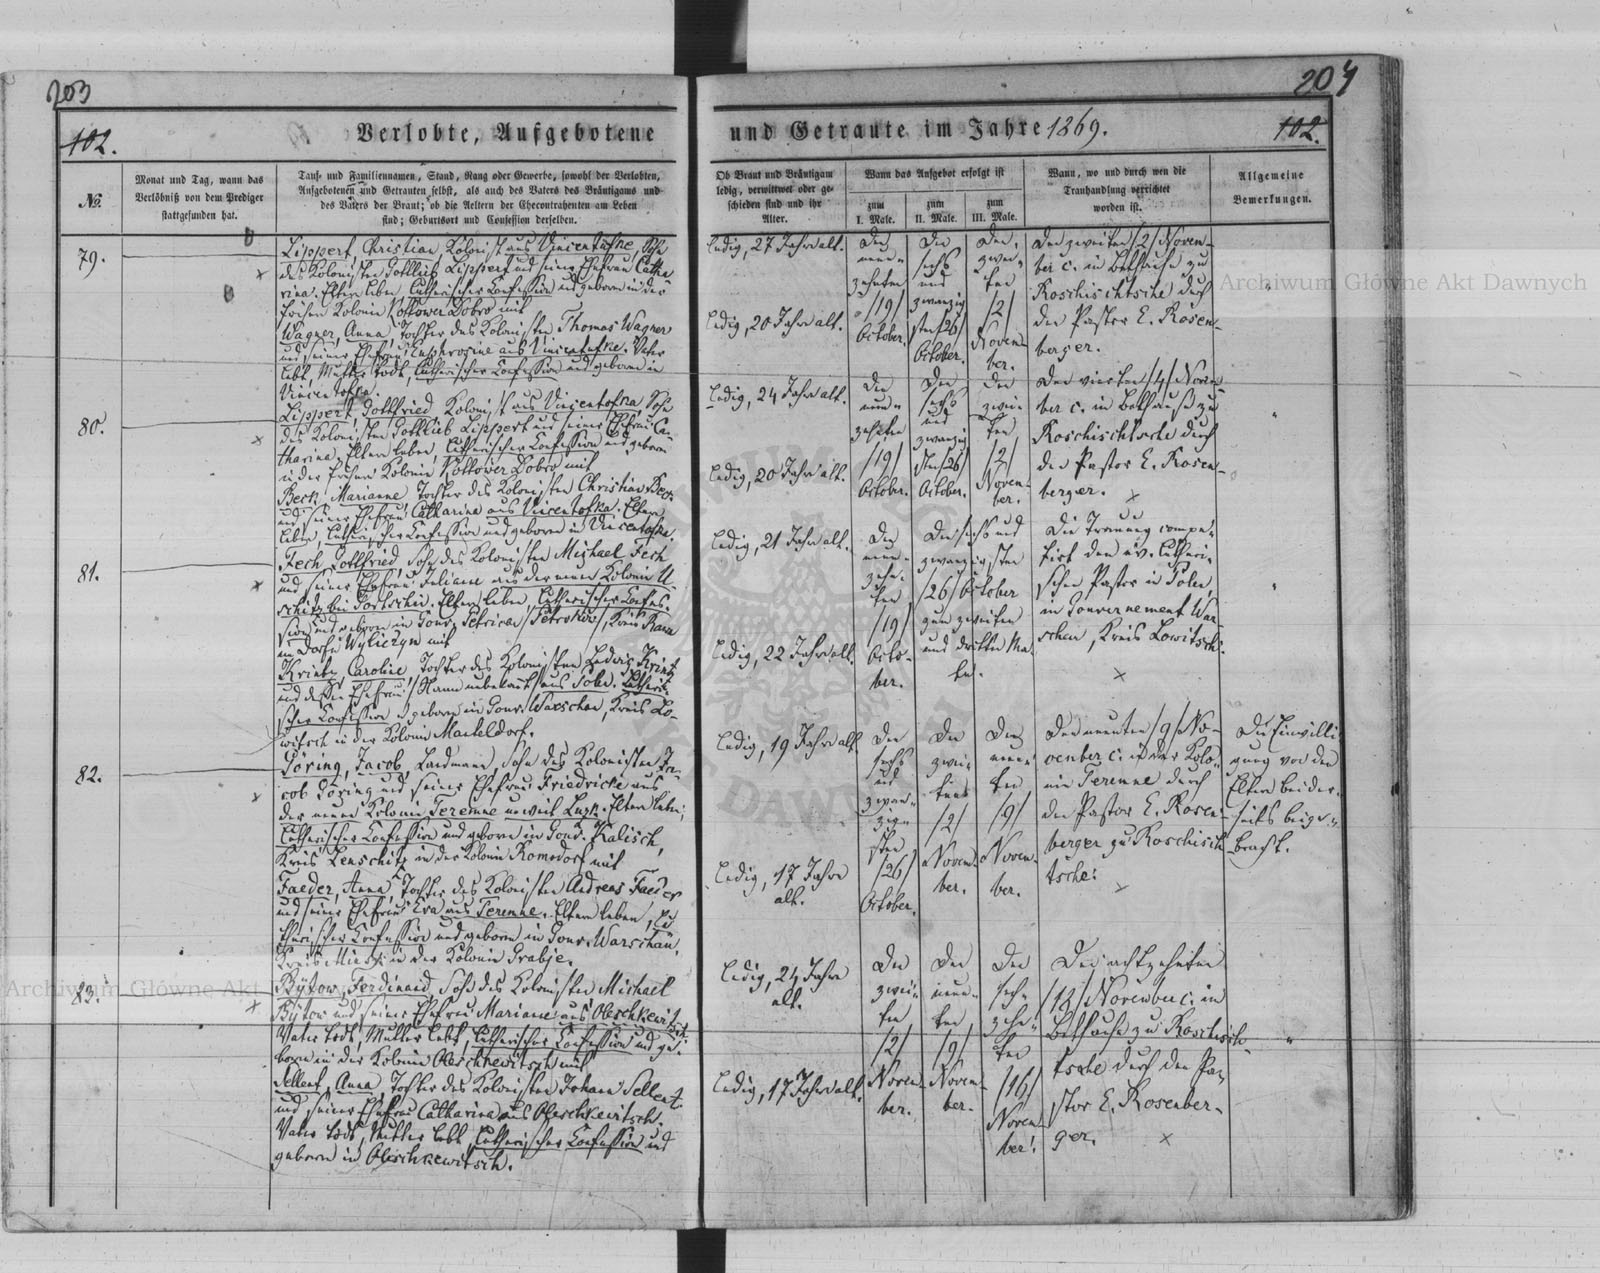 203
204
102.
Verlobte, Aufgebotene
und Getraute im Jahre 1869.
102.
No.
Monat und Tag, wann das
Verlöbniß von dem Prediger
stattgefunden hat.
Tauf- und Familiennamen, Stand, Rang oder Gewerbe, sowohl der Verlobten,
Aufgebotenen und Getrauten selbst, als auch des Vaters des Bräutigams und
des Vaters der Braut; ob die Aeltern der Ehecontrahenten am Leben
sind; Geburtsort und Confession derselben.
Ob Braut und Bräutigam
ledig, verwittwet oder ge-
schieden sind und ihr
Alter.
Wann das Aufgebot erfolgt ist
zum
I. Male.
zum
II. Male.
zum
III. Male.
Wann, wo und durch wen die
Trauhandlung verrichtet
worden ist.
Allgemeine
Bemerkungen.
79.
Lippert, Christian Kolonist aus Vincentufke, Sohn
des Kolonisten Gottlieb Lippert und seiner Ehefrau Catha
rina. Eltern leben, Lutherischer Confession und geboren in der
Kolonie Kottower Dobro mit
Wagner, Anna, Tochter des Kolonisten Thomas Wagner
und seiner Ehefrau Euphrosine aus Vincentufke. Vater
lebt, Mutter todt, Lutherischer Confession und geboren in
Vincentofka.
ledig, 27 Jahr alt.
ledig, 20 Jahr alt.
Den
neun-
zehnten
/19/
October.
Den
sechs
und
zwanzig
sten /26/
October.
Den
zwei-
ten
/2/
Novem-
ber.
Den zweiten /2/ Novem-
ber c. in Bethause zu
Roschischtsche durch
den Pastor E. Rosen-
berger.
"
80.
Lippert, Gottfried Kolonist aus Vincentofka, Sohn
des Kolonisten Gottlieb Lippert und seiner Ehefrau Ca-
tharina. Eltern leben, Lutherischer Confession und geboren
in der Kolonie Kottower Dobro mit
Beck, Marianne Tochter des Kolonisten Christian Beck
und seiner Ehefrau Catharina aus Vincentofka. Eltern
leben, Lutherischer Confession und geboren in Vincentofka.
ledig, 24 Jahr alt.
ledig, 20 Jahr alt.
Den
neun-
zehnten
/19/
October.
Den
sechs
und
zwanzig
sten /26/
October.
Den
zwei-
ten
/2/
Novem-
ber.
Den vierten /4/ Novem-
ber c. in Bethause zu
Roschischtsche durch
den Pastor E. Rosen-
berger.
"
81.
Fech, Gottfried, Sohn des Kolonisten Michael Fech
und seiner Ehefrau Juliane aus der neuen Kolonie U
Eltern leben, Lutherischer Confes-
sion und geboren in Gouv. Petricau /Petrokow/, Kreis Rawa
im Dorfe Wyliczyn mit
Krintz, Caroline, Tochter des Kolonisten Ludwig Krintz
und dessen Ehefrau /Name unbekannt/ aus Polen. Lutheri-
scher Confession u geboren in Gouv. Warschau, Kreis Lo-
witsch in der Kolonie Marteldorf.
ledig, 21 Jahr alt.
ledig, 22 Jahr alt.
Den
neun-
zehn-
ten
/19/
Octo-
ber.
Den sechs und
zwanzigsten
/26/ October
zum zweiten
und dritten Ma-
le.
Die Trauung compe-
tirt den ev. Lutheri-
schen Pastor in Polen,
in Gouvernement War-
schau, Kreis Lowitsch.
"
82.
Göring, Jacob, Landmann, Sohn des Kolonisten Ja-
cob Göring und seiner Ehefrau Friedricke aus
der neuen Kolonie Teremne unweit Luzk. Eltern leben,
Lutherischer Confession und geboren in Gouv. Kalisch,
Kreis Lenschitz in der Kolonie Romsdorf mit
Faeder, Anna, Tochter des Kolonisten Andreas Faeder
und seiner Ehefrau Eva aus Teremne. Eltern leben, Lu
therischer Confession und geboren in Gouv. Warschau,
Kreis in der Kolonie Grabje.
ledig, 19 Jahr alt.
ledig, 17 Jahr
alt.
Den
sechs
und
zwan-
zig-
sten
/26/
October.
Den
zwei-
ten
/2/
Novem-
ber.
Den
neun-
ten
/9/
Novem-
ber.
Den neunten /9/ No-
vember c. in der Kolo-
nie Teremne durch
den Pastor E. Rosen-
berger zu Roschisch-
tsche.
Die Einwilli
gung von den
Eltern beider-
seits beige-
bracht.
83.
Bÿtow, Ferdinand, Sohn des Kolonisten Michael
Bÿtow und seiner Ehefrau Mariane aus Oleschkewitsch.
Vater todt, Mutter lebt, Lutherischer Confession und ge-
boren in der Kolonie Oleschkewitsch mit
Sellent, Anna, Tochter des Kolonisten Johann Sellent
und seiner Ehefrau Catharina aus Oleschkewitsch.
Vater todt, Mutter lebt, Lutherischer Confession und
geboren in Oleschkewitsch.
ledig, 24 Jahr
alt.
ledig, 17 Jahr alt.
Den
zwei-
ten
/2/
Novem-
ber.
Den
neun-
ten
/9/
Novem-
ber.
Den
sech-
zehn-
ten
/16/
Novem-
ber.
Den achtzehnten
/18/ November c. in
Bethause zu Roschisch-
tsche durch den Pa-
stor E. Rosenber-
ger.
"
Archiwum Główne Akt Dawnych
Archiwum Główne Akt